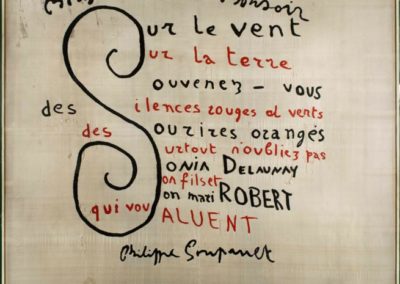 Bonsoir
Sur le vent
Sur la terre
Souvenez - vous
des Silences rouges et verts
des Sourires orangés
Surtout n'oubliez pas
Sonia DELAUNAY
Son fils et
Son mari ROBERT
qui vou SALUENT
Philippe Soupault